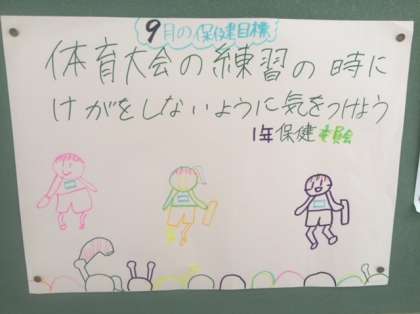 9月の保健目標
体育大会の練習の時に
けがをしないように気をつけよう
1年保健委員会